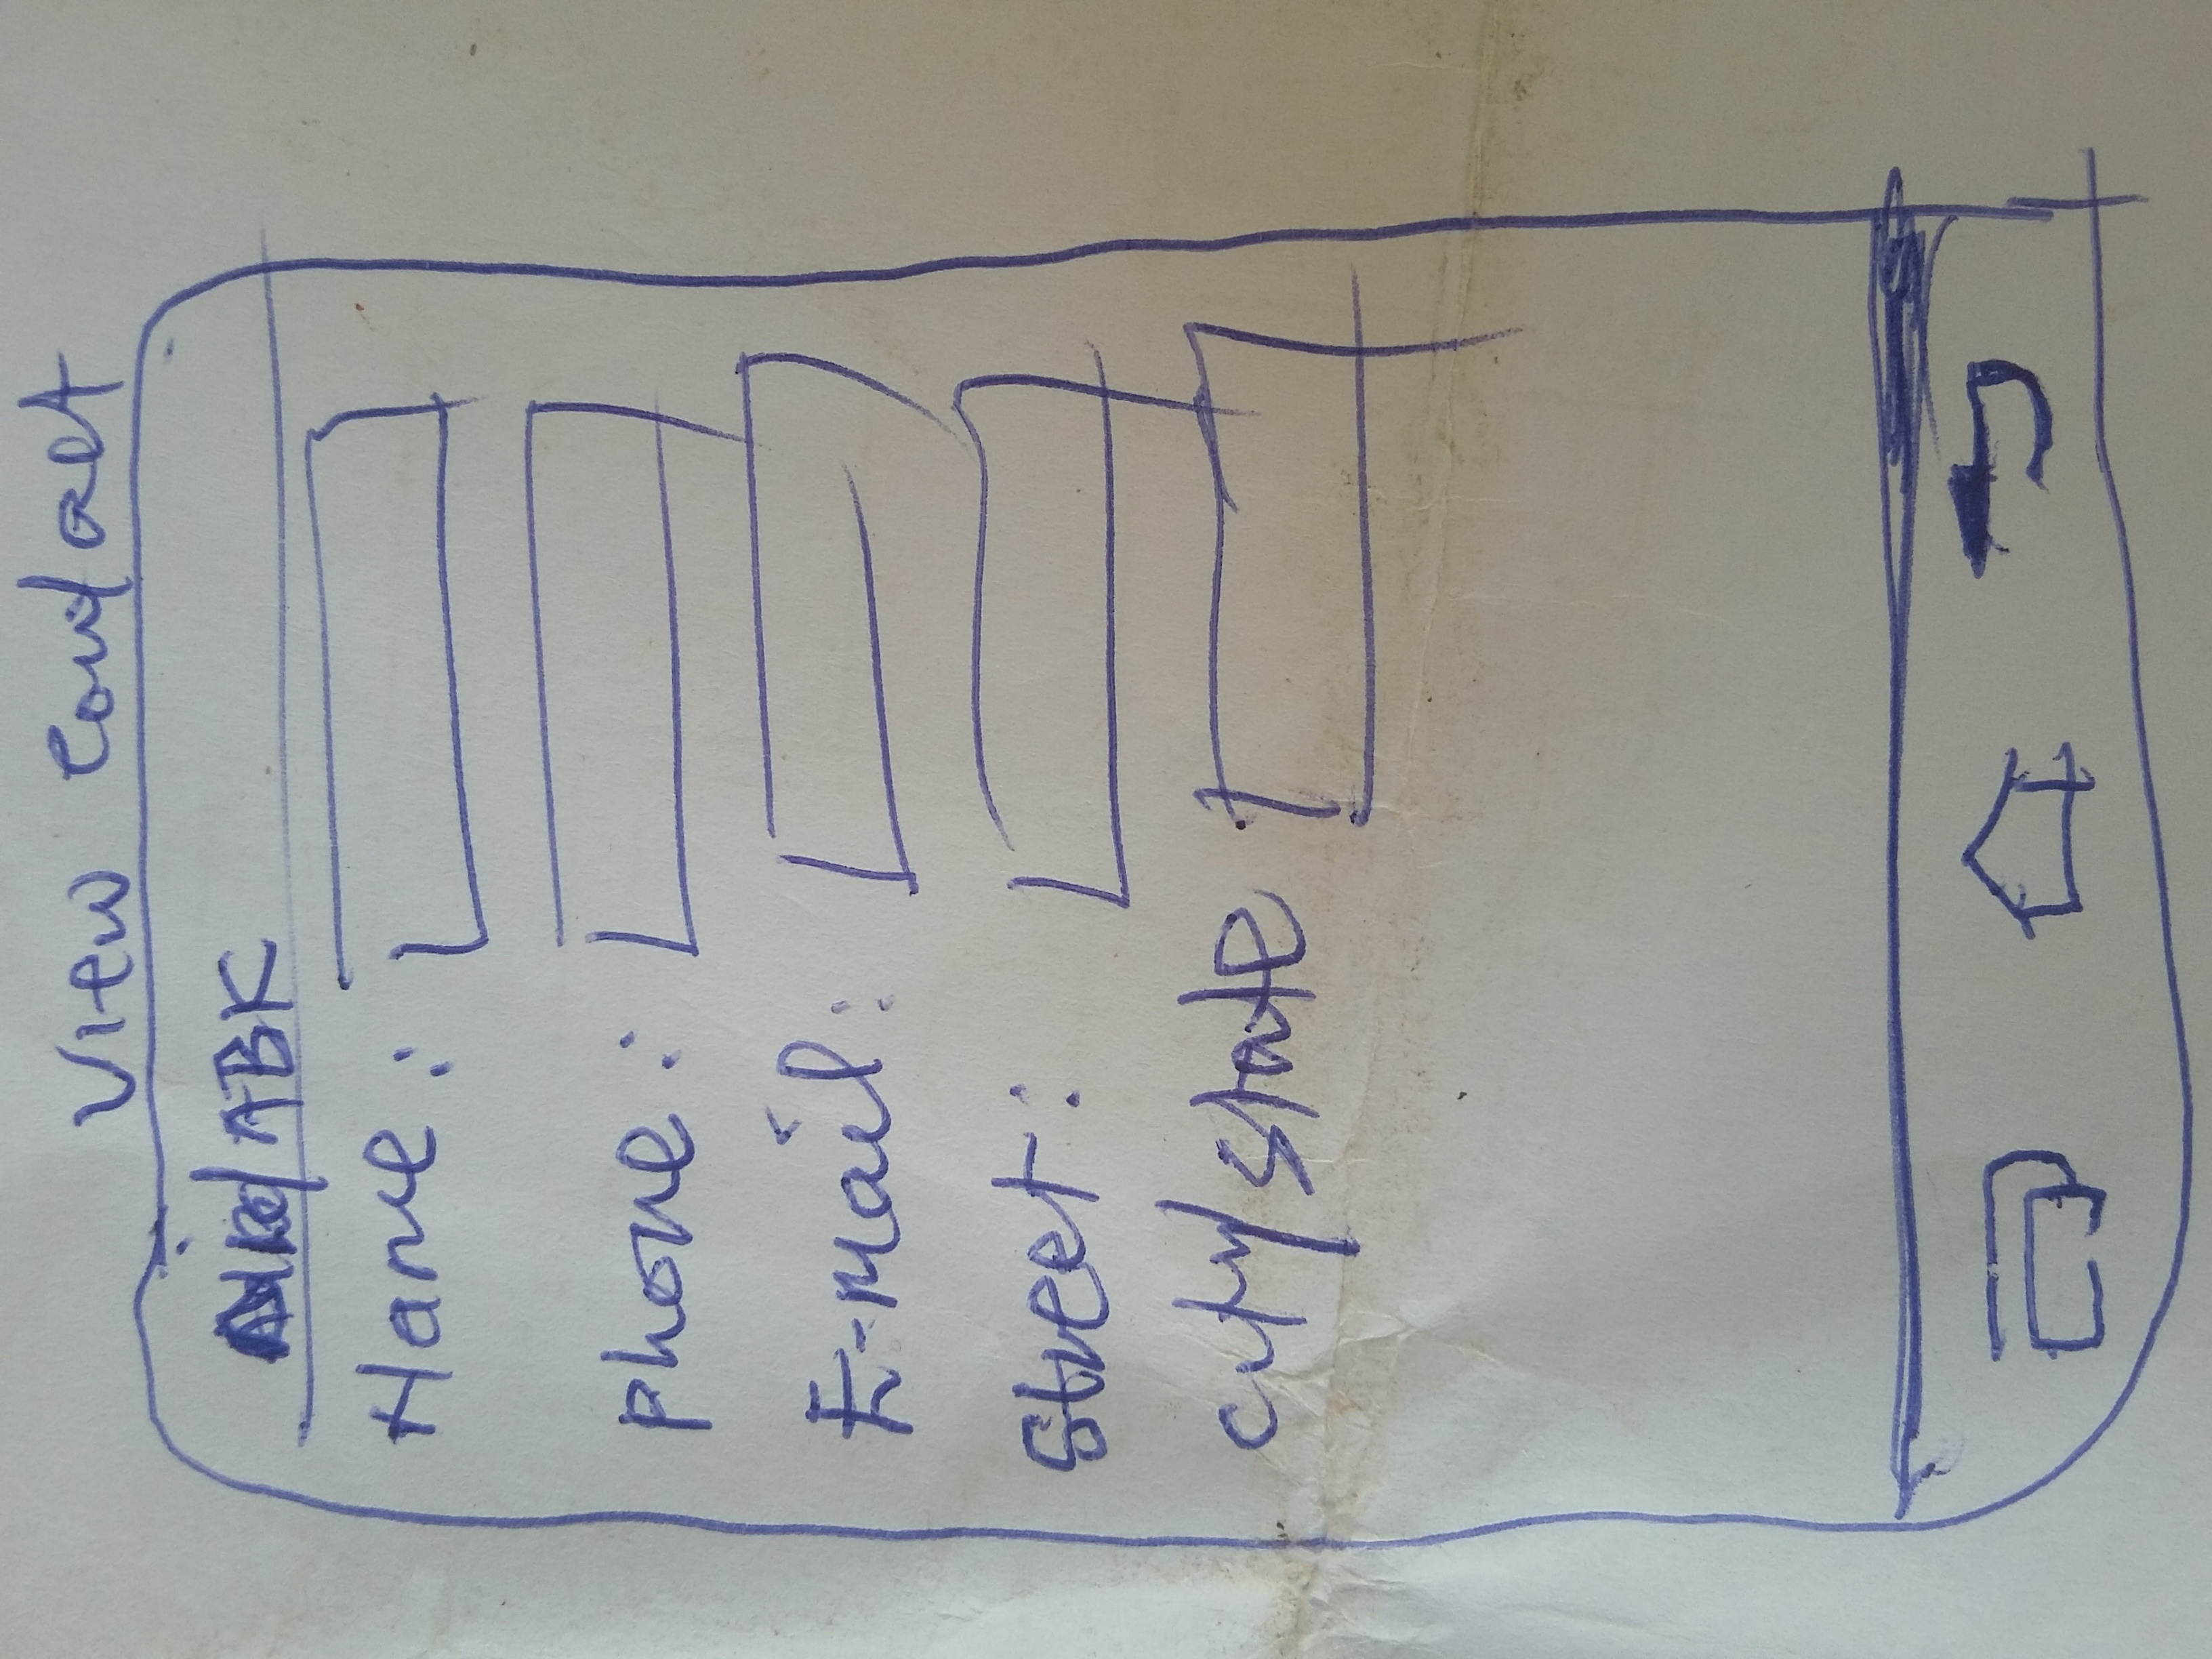 View Contact
/ABK
Name:
phone:
E-mail:
Street:
city/state